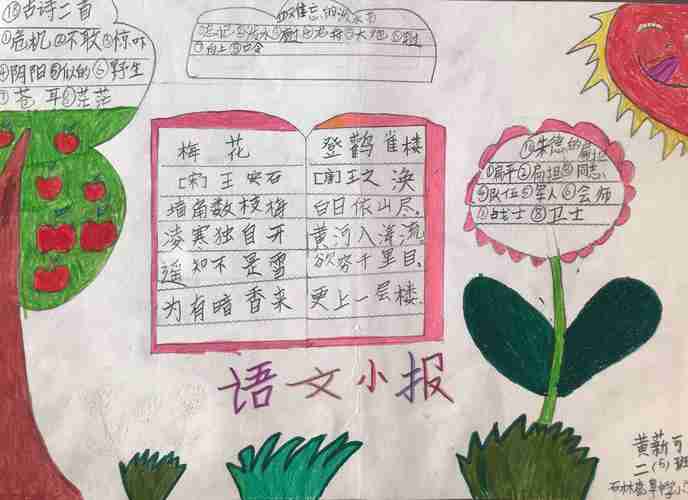 ⑮古诗二首
①危机②不敢③惊吓
④阴阳⑤似的⑥野生
⑦苍耳⑧茫茫
难忘的泼水节
①忘记②泼水③
梅花
[宋]王安石
墙角数枝梅
凌寒独自开
遥知不是雪
为有暗香来
登鹳雀楼
[唐]王之涣
白日依山尽.
黄河入海流.
欲穷千里目.
更上一层楼.
朱德的扁担
①扁平②扁担③同志
④队伍⑤军人⑥会师
⑦战士⑧卫士
语文小报
二(5)班